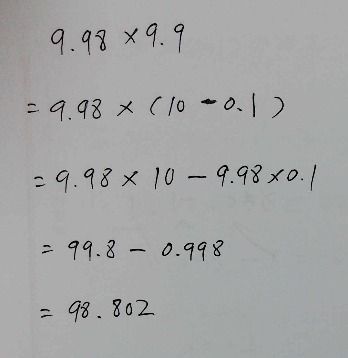 9.98 × 9.9
= 9.98 × (10 - 0.1)
= 9.98 × 10 - 9.98 × 0.1
= 99.8 - 0.998
= 98.802